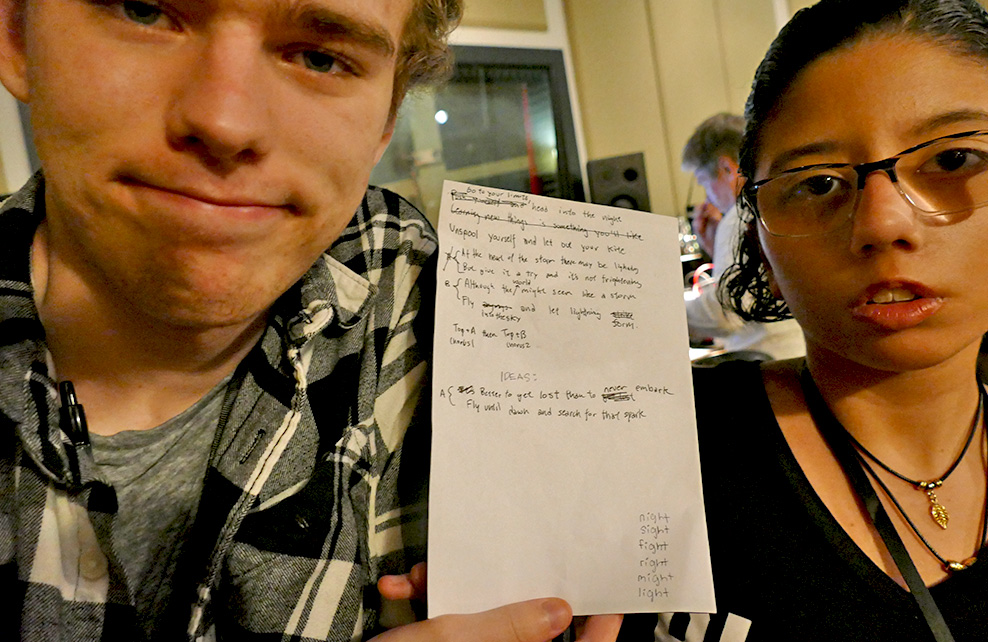 Go to your limits,
head into the night
Learning new things is something you'll like
Unspool yourself and let out your kite
A { At the head of the storm there may be lightning
But give it a try and it's not frightening
B { Although the world might seem like a storm
Fly into the sky and let lightning form.
Top + A then Top + B
Chorus 1 Chorus 2
IDEAS:
A { Better to get lost than to never embark
Fly until dawn and search for that spark
night
sight
fight
right
might
light